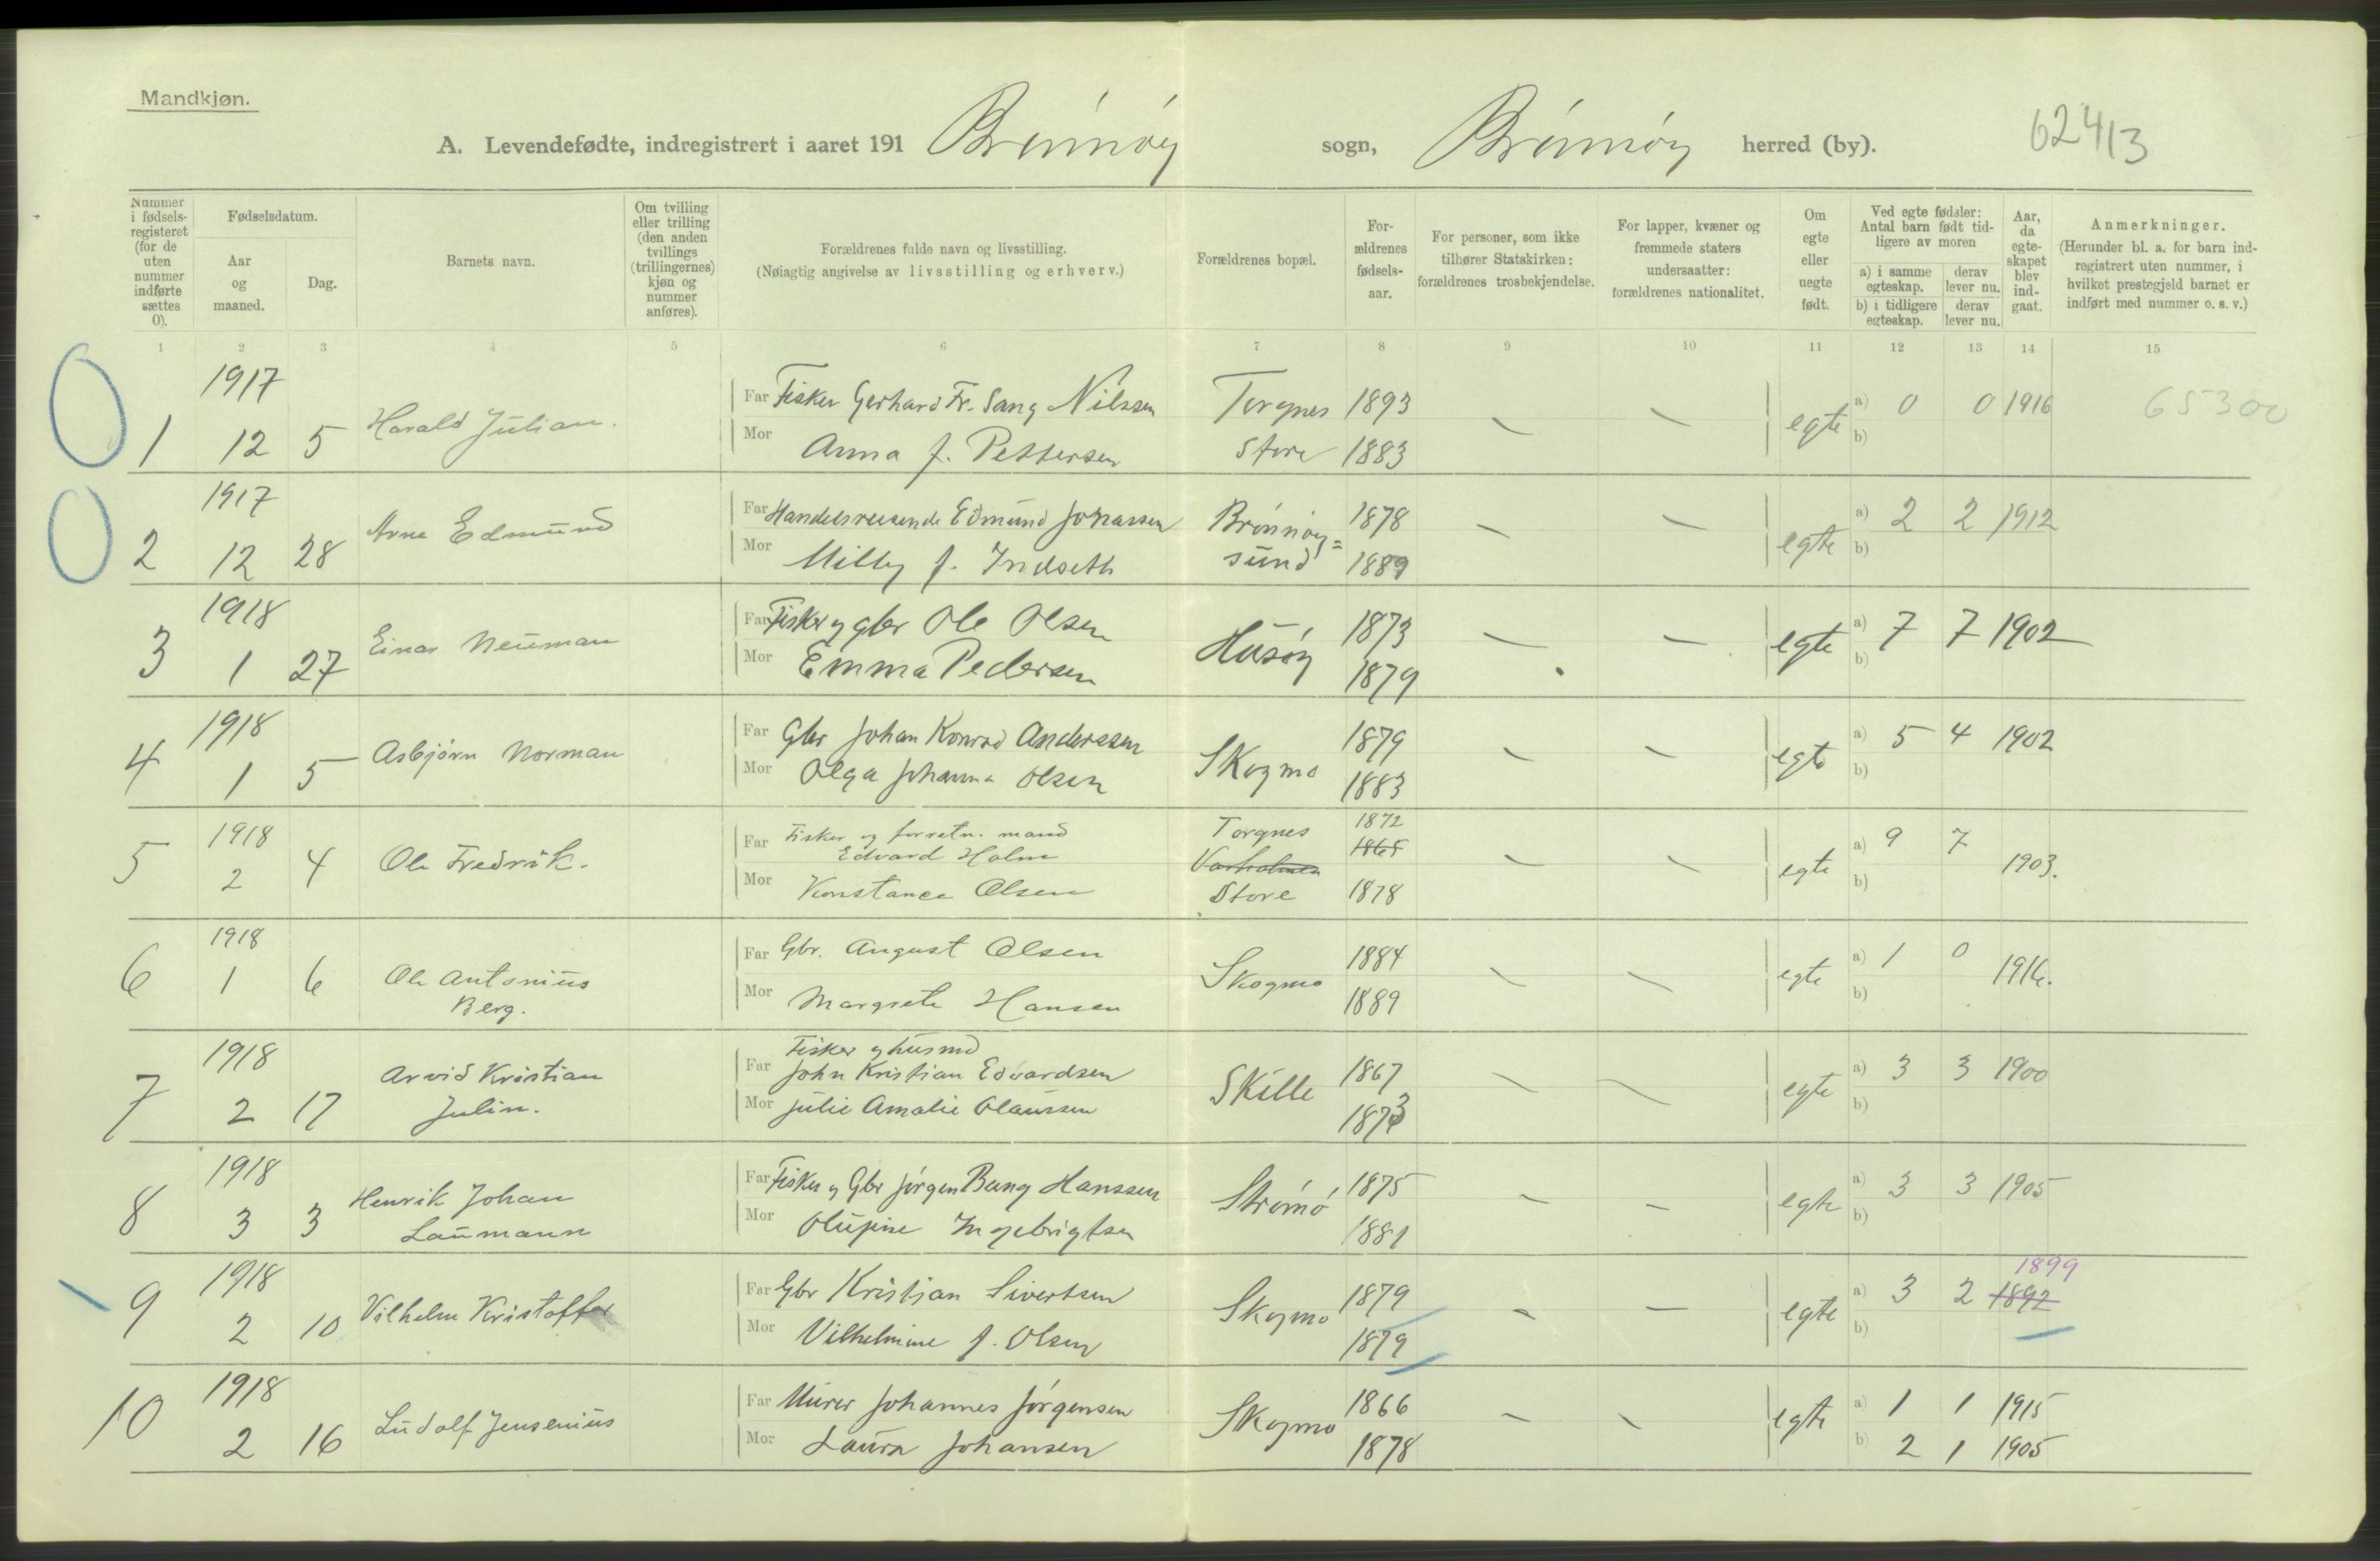 Mandkjøn.
A. Levendefødte, indregistrert i aaret 191 Brønnøy sogn, Brønnøy herred (by). 62413
Nummer i fødsels-registeret (for de uten nummer indførte sættes 0).
Fødselsdatum.
Aar og maaned.
Dag.
Barnets navn.
Om tvilling eller trilling (den anden tvillings (trillingernes) kjøn og nummer anføres).
Forældrenes fulde navn og livsstilling.
(Nøiagtig angivelse av livsstilling og erhverv.)
Forældrenes bopæl.
For-ældrenes fødsels-aar.
For personer, som ikke tilhører Statskirken: forældrenes trosbekjendelse.
For lapper, kvæner og fremmede staters undersaatter: forældrenes nationalitet.
Om egte eller uegte født.
Ved egte fødsler: Antal barn født tid-ligere av moren
a) i samme egteskap. derav lever nu.
b) i tidligere egteskap. derav lever nu.
Aar, da egte-skapet blev ind-gaat.
Anmerkninger.
(Herunder bl. a. for barn ind-registrert uten nummer, i hvilket prestegjeld barnet er indført med nummer o. s. v.)
1 2 3 4 5 6 7 8 9 10 11 12 13 14 15
1917 Far Fisker Gerhard Fr. Sang Nilssen Torgnes 1893 a) 0 0 1916 65300
1 12 5 Harald Julian. Mor Anna f. Pettersen Store 1883 egte b)
1917 Far Handelsreisende Edmund Johnassen Brønnøy= 1878 a) 2 2 1912
2 12 28 Arne Edmund Mor Milly f. Indseth sund 1889 egte b)
1918 Far Fisker og gbr Ole Olsen Husøy 1873 a) 7 7 1902
3 1 27 Einar Neuman Mor Emma Pedersen 1879 egte b)
1918 Far Gbr Johan Konrad Anderssen Skogmo 1879 a) 5 4 1902
4 1 5 Asbjørn Norman Mor Olga Johanna Olsen 1883 egte b)
1918 Far Fisker og forretn. mand Torgnes 1872
Edvard Holm Varholmen 1865 a) 9 7
5 2 4 Ole Fredrik. Mor Konstance Olsen Store 1878 egte b) 1903.
1918 Far Gbr. August Olsen Skogmo 1884 a) 1 0 1916.
6 1 6 Ole Antonius Mor Margrete Hansen 1889 egte b)
Berg.
1918 Far Fisker og husmd
Arvid Kristian John Kristian Edvardsen Skille 1867 a) 3 3 1900
7 2 17 Julin. Mor Julie Amalie Olaussen 1873 egte b)
1918 Far Fisker og Gbr Jørgen Bang Hanssen Strømø 1875 a) 3 3 1905
8 3 3 Henrik Johan Mor Olufine Ingebrigtsen 1881 egte b)
Laumann
1899
1918 Far Gbr Kristian Sivertsen Skogmo 1879 a) 3 2 1892
9 2 10 Vilhelm Kristoffer Mor Vilhelmine f. Olsen 1879 egte b)
1918 Far Murer Johannes Jørgensen Skogmo 1866 a) 1 1 1915
10 2 16 Ludolf Jensenius Mor Laura Johansen 1878 egte b) 2 1 1905